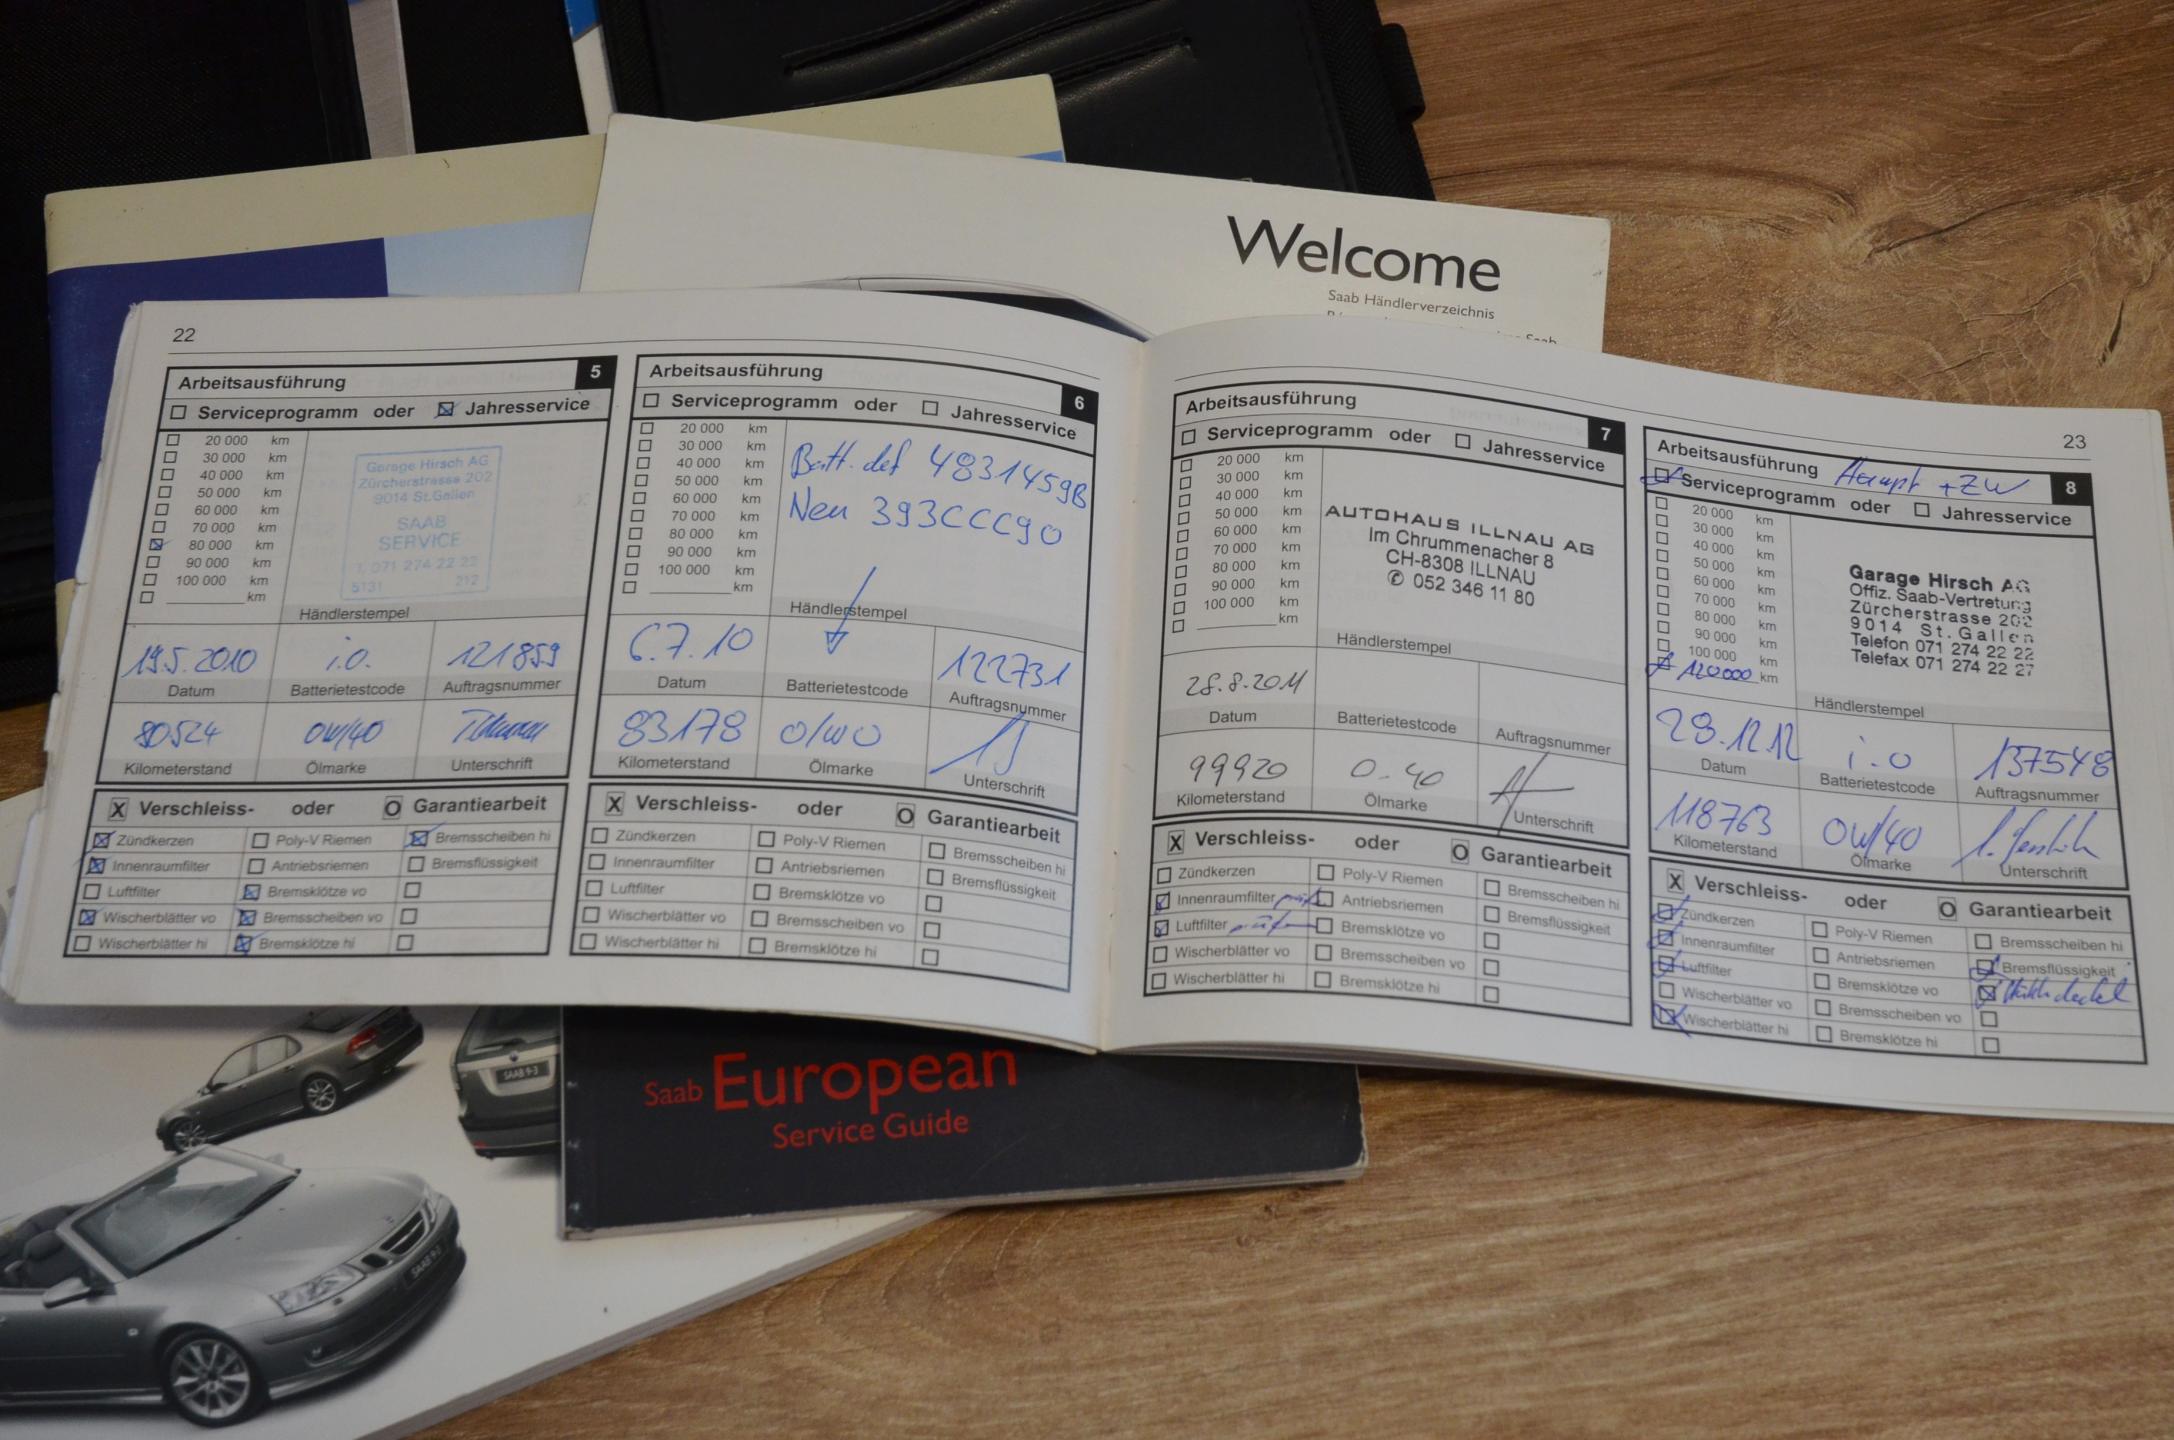 Welcome
Saab Händlerverzeichnis
22
Arbeitsausführung 5
Serviceprogramm oder Jahresservice
20 000 km
30 000 km
40 000 km
50 000 km
60 000 km
70 000 km
80 000 km
90 000 km
100 000 km
km
Garage Hirsch AG
Zürcherstrasse 202
9014 St.Gallen
SAAB
SERVICE
T. 071 274 22 22
5131 212
Händlerstempel
19.5.2010 i.o. 121859
Datum Batterietestcode Auftragsnummer
80524 0W/40
Kilometerstand Ölmarke Unterschrift
X Verschleiss- oder O Garantiearbeit
Zündkerzen Poly-V Riemen Bremsscheiben hi
Innenraumfilter Antriebsriemen Bremsflüssigkeit
Luftfilter Bremsklötze vo
Wischerblätter vo Bremsscheiben vo
Wischerblätter hi Bremsklötze hi
Arbeitsausführung 6
Serviceprogramm oder Jahresservice
20 000 km
30 000 km
40 000 km
50 000 km
60 000 km
70 000 km
80 000 km
90 000 km
100 000 km
km
Batt. def 4831459B
Neu 393CCC90
Händlerstempel
6.7.10 122731
Datum Batterietestcode Auftragsnummer
83178 0/W0
Kilometerstand Ölmarke Unterschrift
X Verschleiss- oder O Garantiearbeit
Zündkerzen Poly-V Riemen Bremsscheiben hi
Innenraumfilter Antriebsriemen Bremsflüssigkeit
Luftfilter Bremsklötze vo
Wischerblätter vo Bremsscheiben vo
Wischerblätter hi Bremsklötze hi
Arbeitsausführung 7
Serviceprogramm oder Jahresservice
20 000 km
30 000 km
40 000 km
50 000 km
60 000 km
70 000 km
80 000 km
90 000 km
100 000 km
km
AUTOHAUS ILLNAU AG
Im Chrummenacher 8
CH-8308 ILLNAU
✆ 052 346 11 80
Händlerstempel
28.8.2011
Datum Batterietestcode Auftragsnummer
99920 0-40
Kilometerstand Ölmarke Unterschrift
X Verschleiss- oder O Garantiearbeit
Zündkerzen Poly-V Riemen Bremsscheiben hi
Innenraumfilter Antriebsriemen Bremsflüssigkeit
Luftfilter prüfen Bremsklötze vo
Wischerblätter vo Bremsscheiben vo
Wischerblätter hi Bremsklötze hi
23
Arbeitsausführung Haupt + ZW 8
Serviceprogramm oder Jahresservice
20 000 km
30 000 km
40 000 km
50 000 km
60 000 km
70 000 km
80 000 km
90 000 km
100 000 km
120000 km
Garage Hirsch AG
Offiz. Saab-Vertretung
Zürcherstrasse 202
9014 St.Gallen
Telefon 071 274 22 22
Telefax 071 274 22 27
Händlerstempel
28.12.12 i.o 137548
Datum Batterietestcode Auftragsnummer
118763 0W/40
Kilometerstand Ölmarke Unterschrift
X Verschleiss- oder O Garantiearbeit
Zündkerzen Poly-V Riemen Bremsscheiben hi
Innenraumfilter Antriebsriemen Bremsflüssigkeit
Luftfilter Bremsklötze vo
Wischerblätter vo Bremsscheiben vo
Wischerblätter hi Bremsklötze hi
Saab European
Service Guide
SAAB 9-3
SAAB 9-3